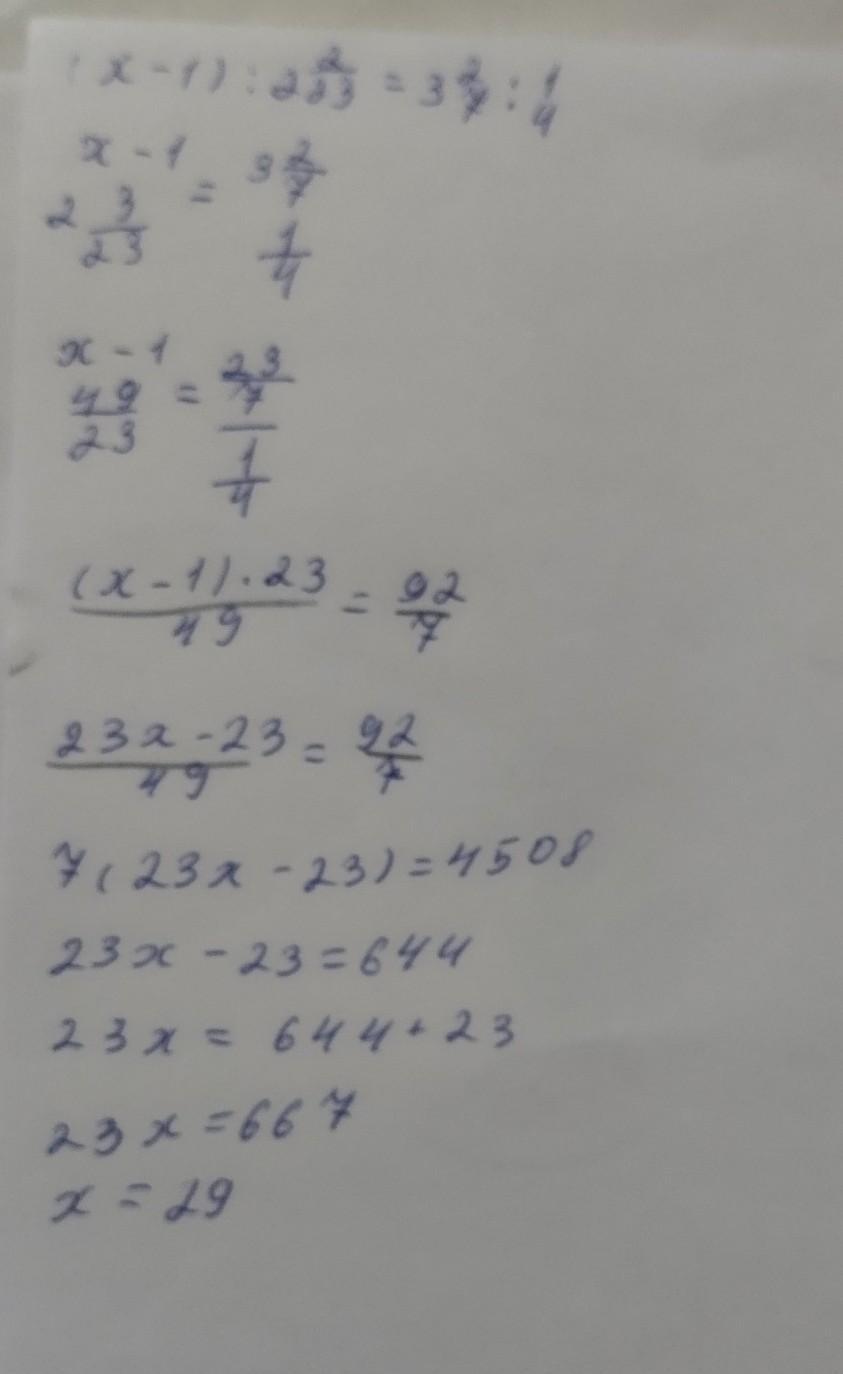 (x-1) : 2 2/23 = 3 2/7 : 1/4
(x-1)/(2 3/23) = (3 2/7)/(1/4)
(x-1)/(49/23) = (23/7)/(1/4)
((x-1)·23)/49 = 92/7
(23x-23)/49 = 92/7
7(23x-23)=4508
23x-23=644
23x=644+23
23x=667
x=29